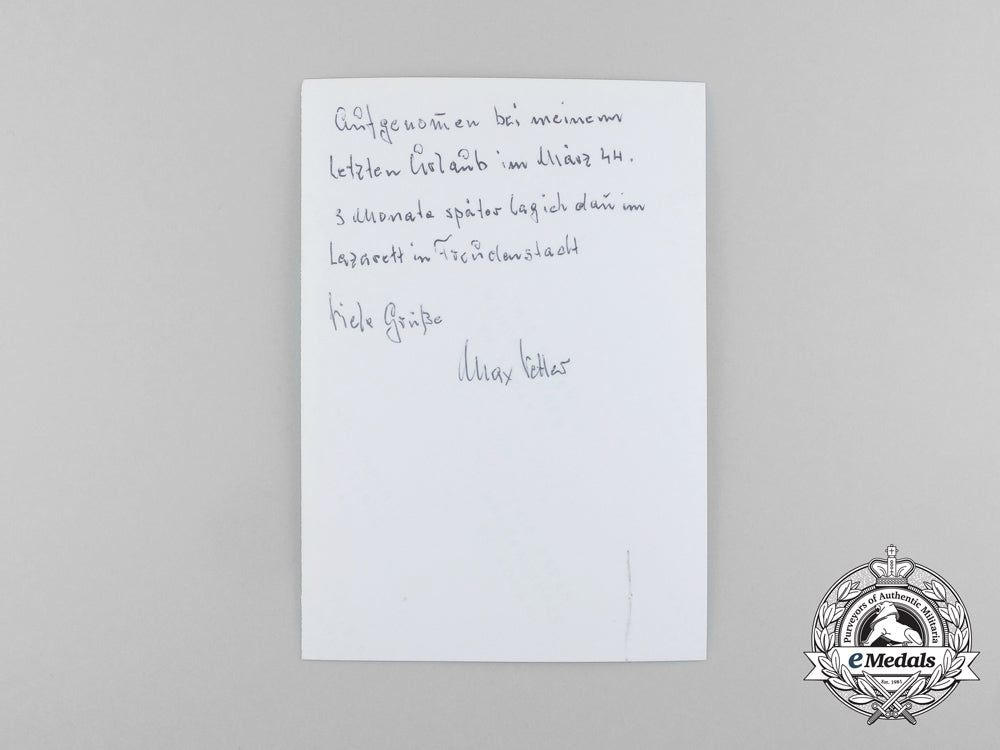 Aufgenom̄en bei meinem
letzten Urlaub im März 44.
3 Monate später lag ich dan̄ im
Lazarett in Freudenstadt
Viele Grüße
Max Vetter
Purveyors of Authentic Militaria
eMedals
Est. 1981